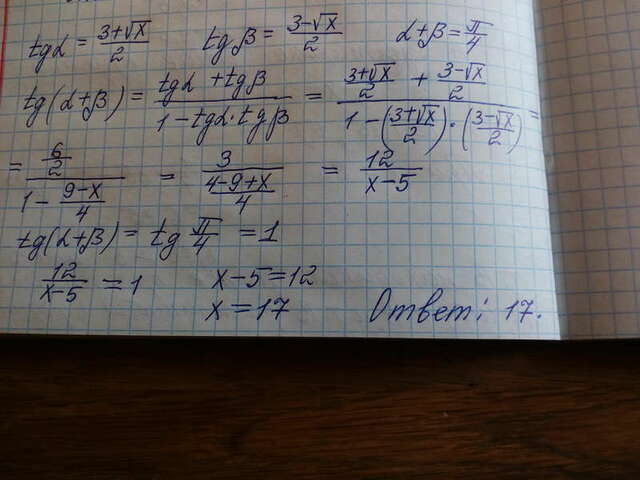 tgα = (3+√x)/2 tgβ = (3-√x)/2 α+β = π/4
tg(α+β) = (tgα + tgβ)/(1 - tgα·tgβ) = ((3+√x)/2 + (3-√x)/2)/(1 - ((3+√x)/2)·((3-√x)/2)) =
= (6/2)/(1 - (9-x)/4) = 3/((4-9+x)/4) = 12/(x-5)
tg(α+β) = tg π/4 = 1
12/(x-5) = 1 x-5=12
x = 17 Ответ: 17.